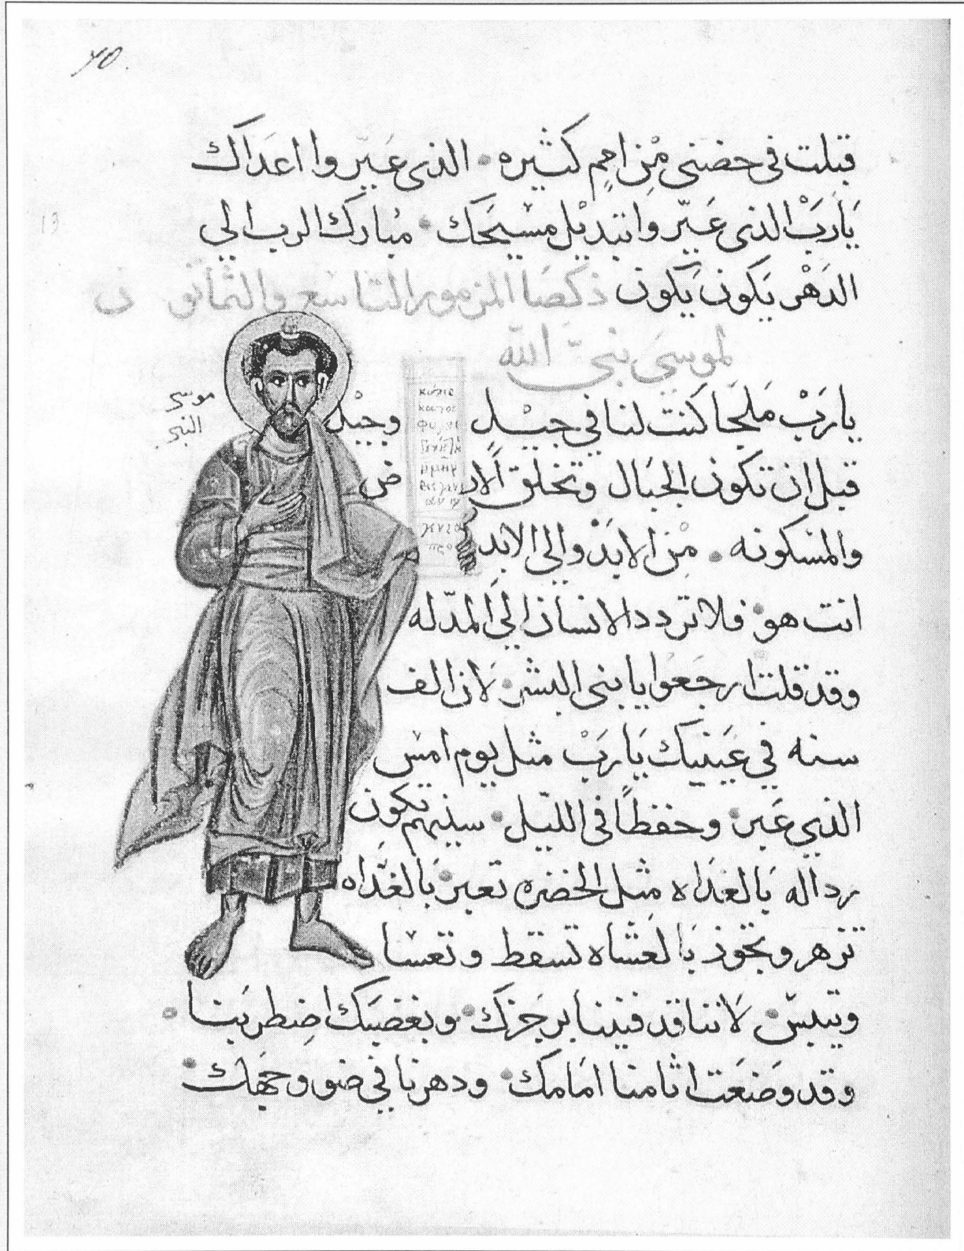 قبلت في حضني مِن امم كثيره • الذي عَيّروا اعدَاك
يَارَبْ الذي عَيّروا بتبديل مسيحَك • مبارك الرب الي
الدَهْر يَكون يَكون ذكصا المزمور التاسع والثمانون
لموسَى نبيّ الله
موسى النبي
يا رَبْ مَلجَا كنت لنا في جيْل وجيْل
قبل ان تكون الجبال وتخلق الارض
والمسكونه • مِن الابد والي الابد
انت هو • فلا تردد الانسان الي المذله
وقد قلت ارجَعوا يا بني البشر • لان الف
سنه في عَينيك يَا ربْ مثل يوم امس
الذي عَبر • وحفظاً في الليل • سنيهم تكون
رداله بَالغدَاه مثل الخضره تعبر • بَالغدَاه
تزهر وتجوز بَالعشاه تسقط وتعسا
وتيبس • لاننا قد فنينا برجزك • وبغضبك اضطربنا •
وقد وضعت اثامنا امَامك • ودهرنا في ضو وجهك •